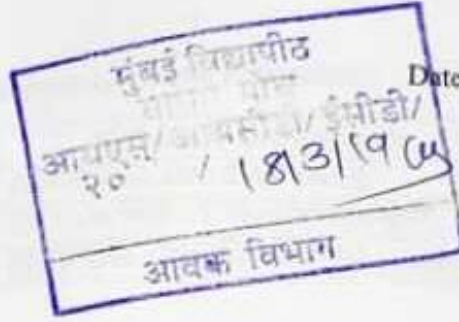 मुंबई विद्यापीठ
Date
आयएस/आयसीडी/ईसीडी/
२० / 18/3/19
आवक विभाग